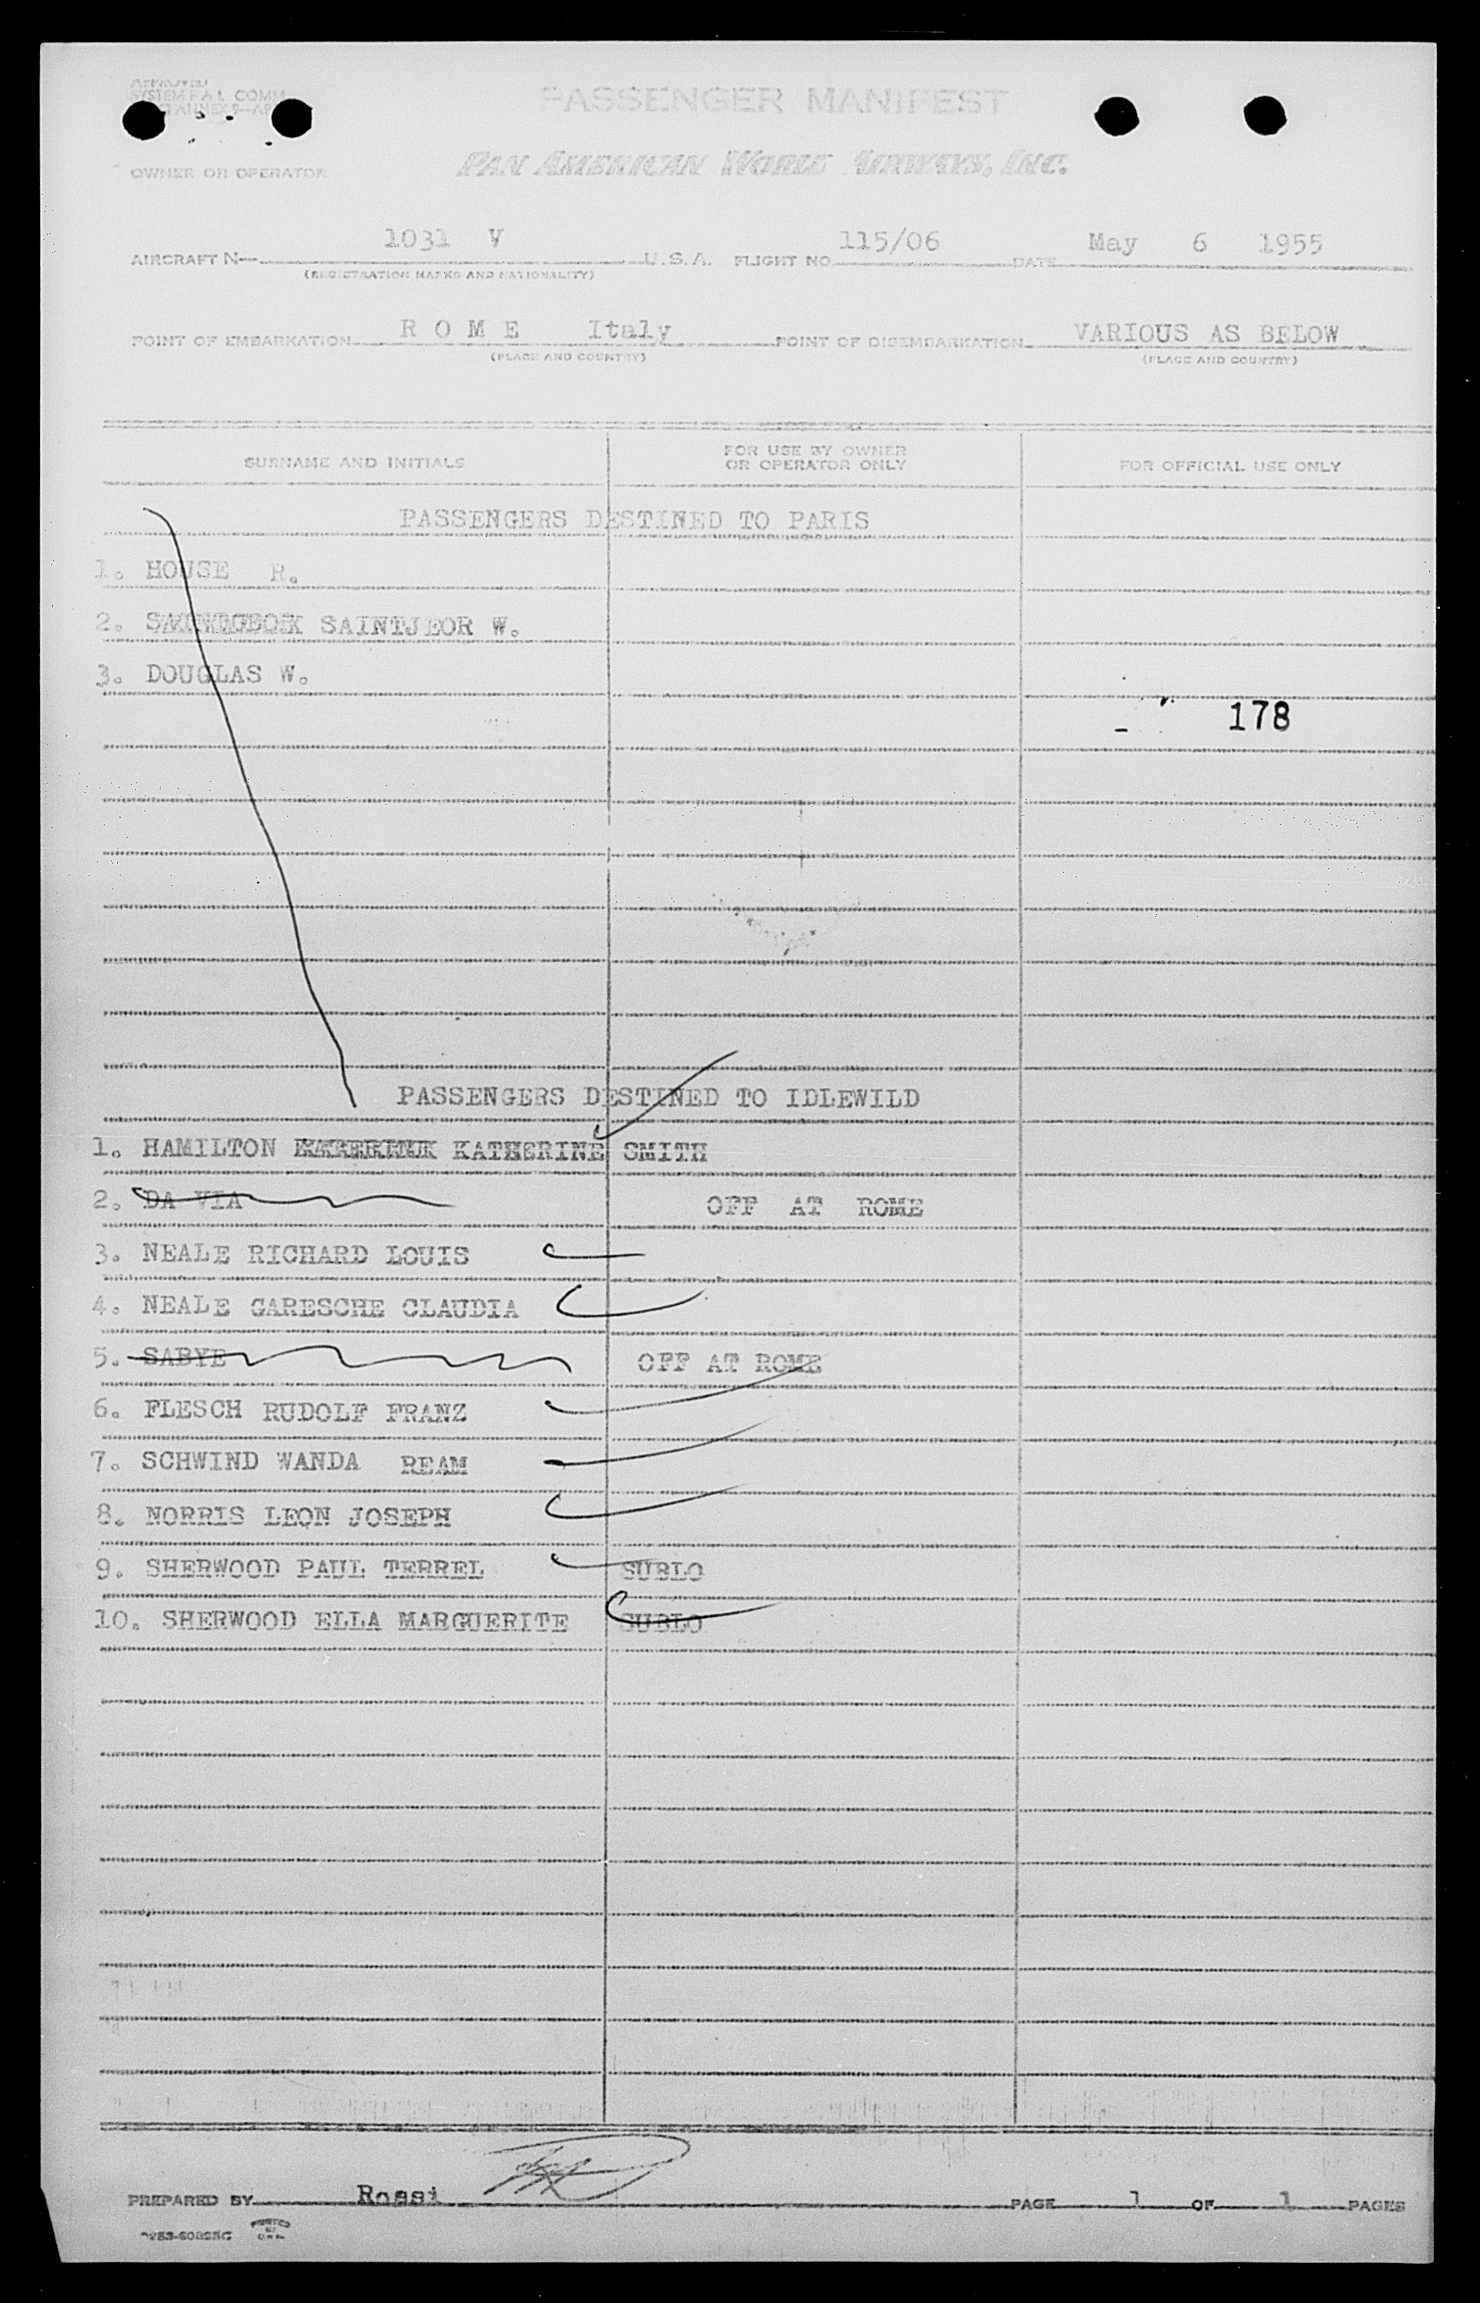 APPROVED
SYSTEM F.A.L. COMM
ANNEX 9-AP
PASSENGER MANIFEST
OWNER OR OPERATOR PAN AMERICAN WORLD AIRWAYS, INC.
AIRCRAFT N— 1031 V U.S.A. FLIGHT NO. 115/06 DATE May 6 1955
(REGISTRATION MARKS AND NATIONALITY)
POINT OF EMBARKATION R O M E Italy POINT OF DISEMBARKATION VARIOUS AS BELOW
(PLACE AND COUNTRY) (PLACE AND COUNTRY)
SURNAME AND INITIALS FOR USE BY OWNER OR OPERATOR ONLY FOR OFFICIAL USE ONLY
PASSENGERS DESTINED TO PARIS
1. HOUSE R.
2. SAINTJEOR W.
3. DOUGLAS W.
178
PASSENGERS DESTINED TO IDLEWILD
1. HAMILTON KATHERINE SMITH
2. DA VIA OFF AT ROME
3. NEALE RICHARD LOUIS
4. NEALE GARESCHE CLAUDIA
5. SABYE OFF AT ROME
6. FLESCH RUDOLF FRANZ
7. SCHWIND WANDA REAM
8. NORRIS LEON JOSEPH
9. SHERWOOD PAUL TERREL SUBLO
10. SHERWOOD ELLA MARGUERITE SUBLO
PREPARED BY Rossi PAGE 1 OF 1 PAGES
PRINTED IN U.S.A.